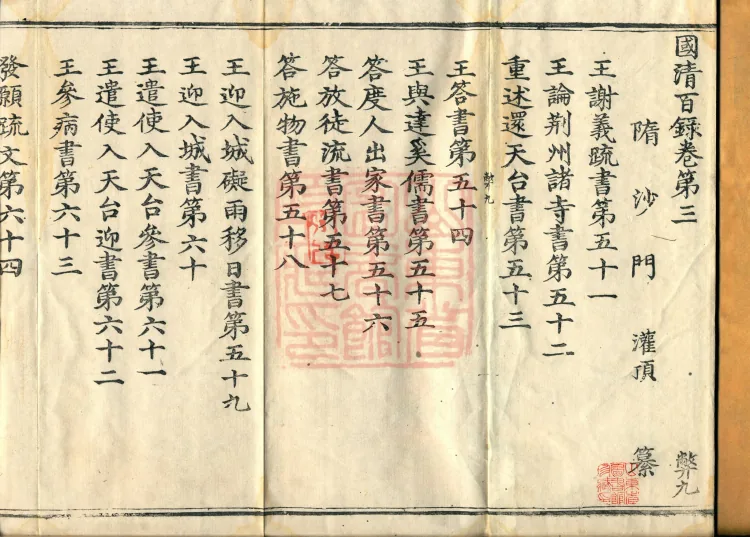 國清百錄卷第三
弊九
隋沙門灌頂纂
王謝義䟽書第五十一
王論荆州諸寺書第五十二
重述還天台書第五十三
弊九
王答書第五十四
王與達奚儒書第五十五
答度人出家書第五十六
答放徒流書第五十七
答施物書第五十八
王迎入城礙雨移日書第五十九
王迎入城書第六十
王遣使入天台參書第六十一
王遣使入天台迎書第六十二
王參病書第六十三
發願䟽文第六十四